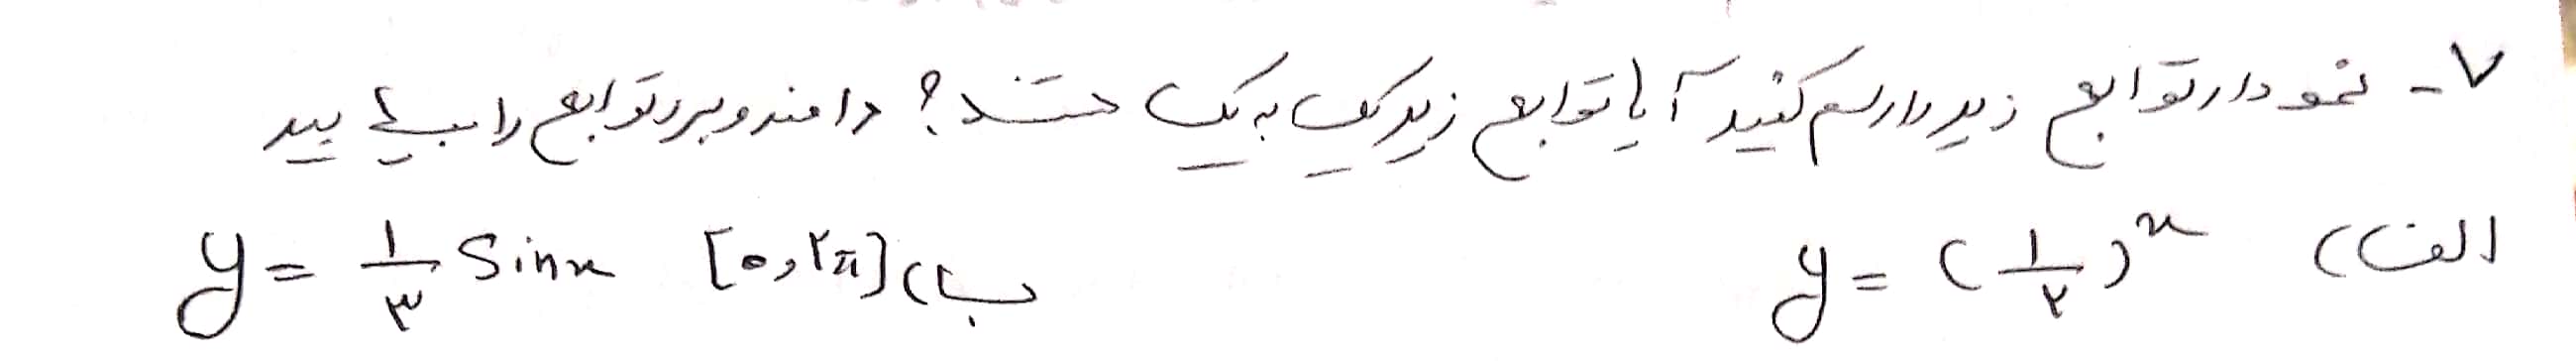 ۷- نمودار توابع زیر را رسم کنید آیا توابع زیر یک به یک هستند؟ دامنه و برد توابع را بیابید
الف) y = (۱/۲)^x ب) y = ۱/۳ Sinx [۰, ۲π]